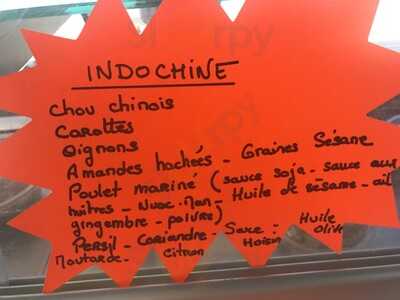 INDOCHINE
Chou chinois
Carottes
Oignons
Amandes hachées - Graines Sésane
Poulet mariné (sauce soja - sauce aux
huitres - Nuoc-Man - Huile de sésame - ail
gingembre - poivre)
Persil - Coriandre - Sauce : Hoisin Huile Olive
Moutarde - Citron